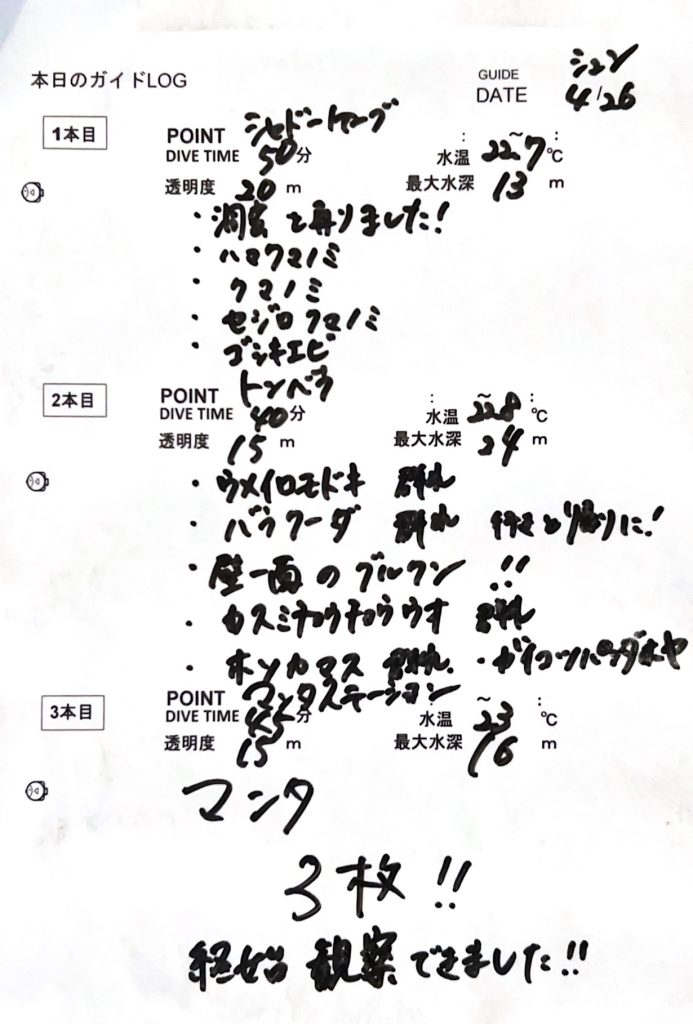 本日のガイドLOG
GUIDE シュン
DATE 4/26
1本目
POINT シャドーケーブ
DIVE TIME 50分 水温 22.7℃
透明度 20 m 最大水深 13 m
・洞窟を
・ハマクマノミ
・クマノミ
・セジロクマノミ
・ゴシキエビ
2本目
POINT トンバラ
DIVE TIME 40分 水温 ~22.8℃
透明度 15 m 最大水深 24 m
・ウメイロモドキ 群れ
・バラクーダ 群れ 行きと帰りに!
・壁一面のグルクン!!
・カスミチョウチョウウオ 群れ
・ホソカマス 群れ ・ガイコツパンダホヤ
3本目
POINT マンタステーション
DIVE TIME 45分 水温 ~23℃
透明度 15 m 最大水深 16 m
マンタ
3枚!!
終始 観察できました!!